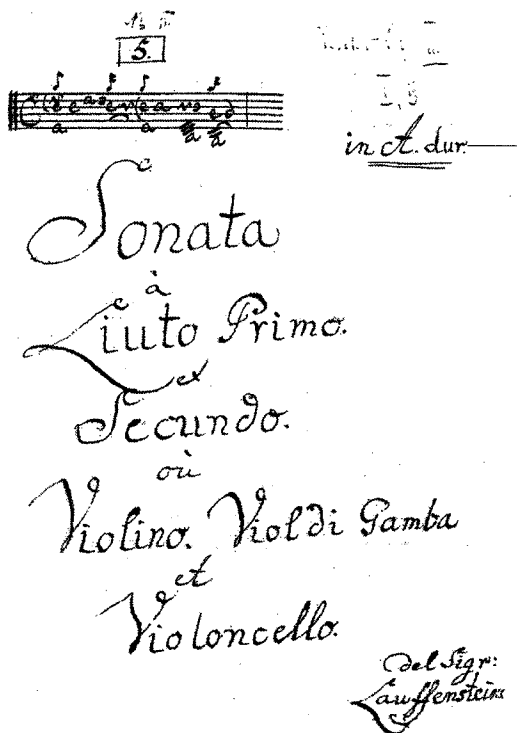 No III
5.
I, 5
in A. dur.
Sonata
à
Liuto Primo.
et
Secundo.
où
Violino. Viol di Gamba
et
Violoncello.
del Sigr:
Lauffensteine